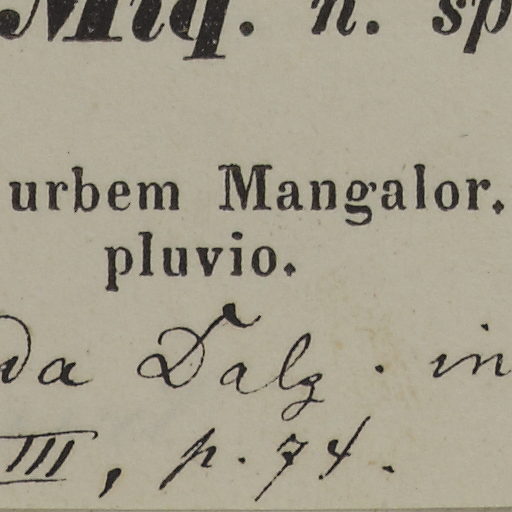 Miq. n. sp
urbem Mangalor.
pluvio.
da Dalz. in
III, p. 74.